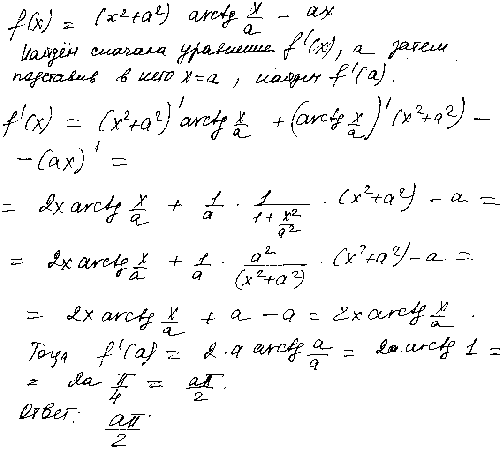 f(x) = (x²+a²) arctg x/a − ax
Найдём сначала уравнение f'(x), а затем
подставив в него x=a, найдём f'(a).
f'(x) = (x²+a²)' arctg x/a + (arctg x/a)' (x²+a²) −
− (ax)' =
= 2x arctg x/a + 1/a · 1/(1 + x²/a²) · (x²+a²) − a =
= 2x arctg x/a + 1/a · a²/(x²+a²) · (x²+a²) − a =
= 2x arctg x/a + a − a = 2x arctg x/a .
Тогда f'(a) = 2·a arctg a/a = 2a arctg 1 =
= 2a π/4 = aπ/2.
Ответ: aπ/2